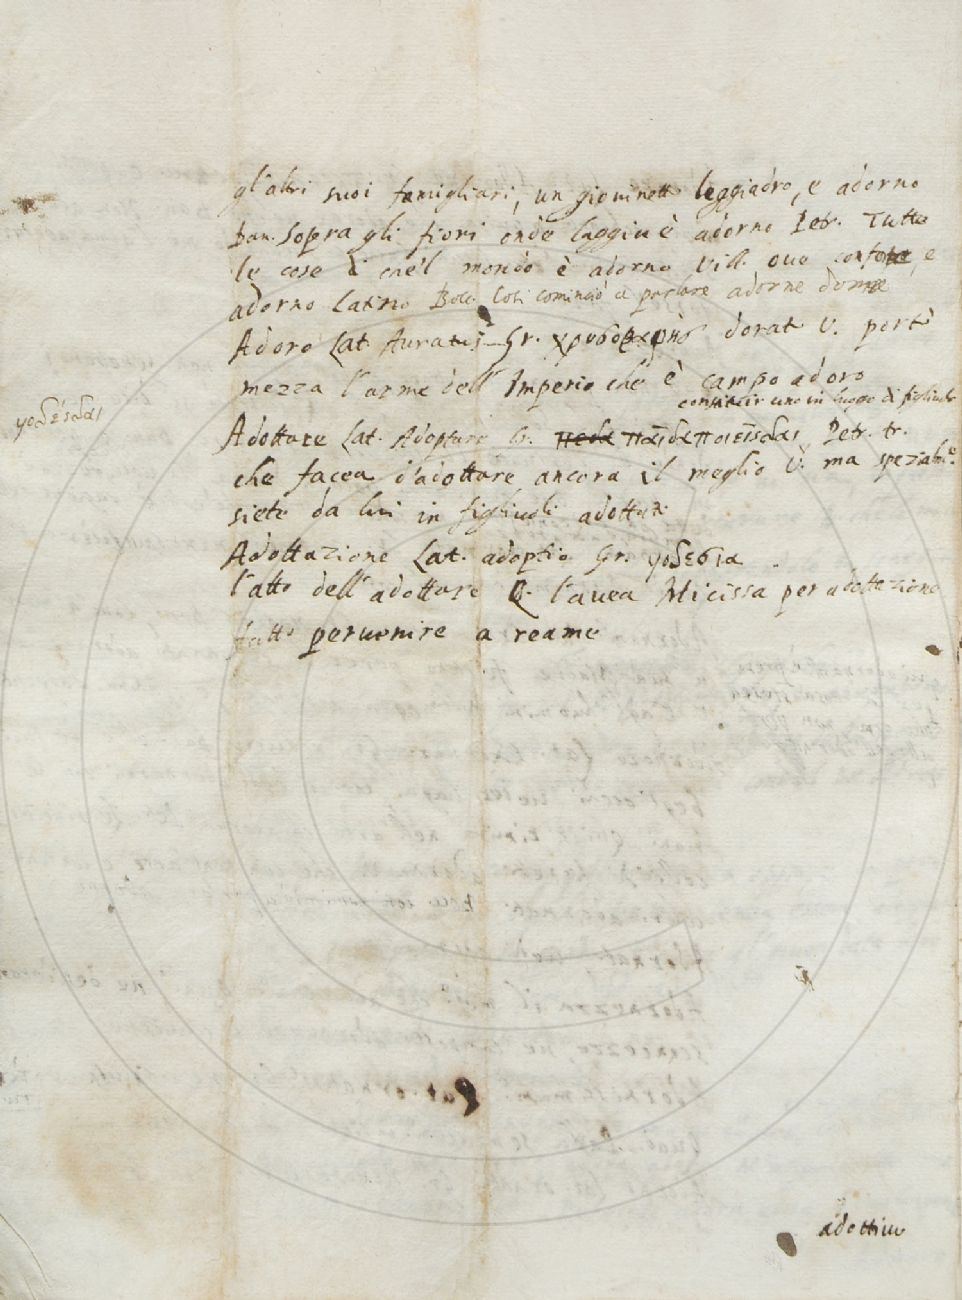 gl'altri suoi famigliari, un giovinetto leggiadro, e adorno
Dan. Sopra gli fiori onde laggiu è adorno Petr. Tutte
le cose di che'l mondo è adorno Vill. ove e
adorno Latino Bocc. Così cominciò a parlare adorne donne
Adoro Lat. Auratus Gr. dorat V. portò
mezza l'arme dell'Imperio che è campo adoro
constituir uno in luogo di figliuolo
υοθέσθαι
Adottare Lat. Adoptare Gr. παῖδα ποιεῖσθαι Petr. tr.
che facea d'adottare ancora il meglio V. ma spezialm.e
siete da lui in figliuoli adottati
Adottazione Lat. adoptio Gr. υοθεσια
l'atto dell'adottare l'avea Micissa per adottazione
fatto pervenire a reame
adottivo